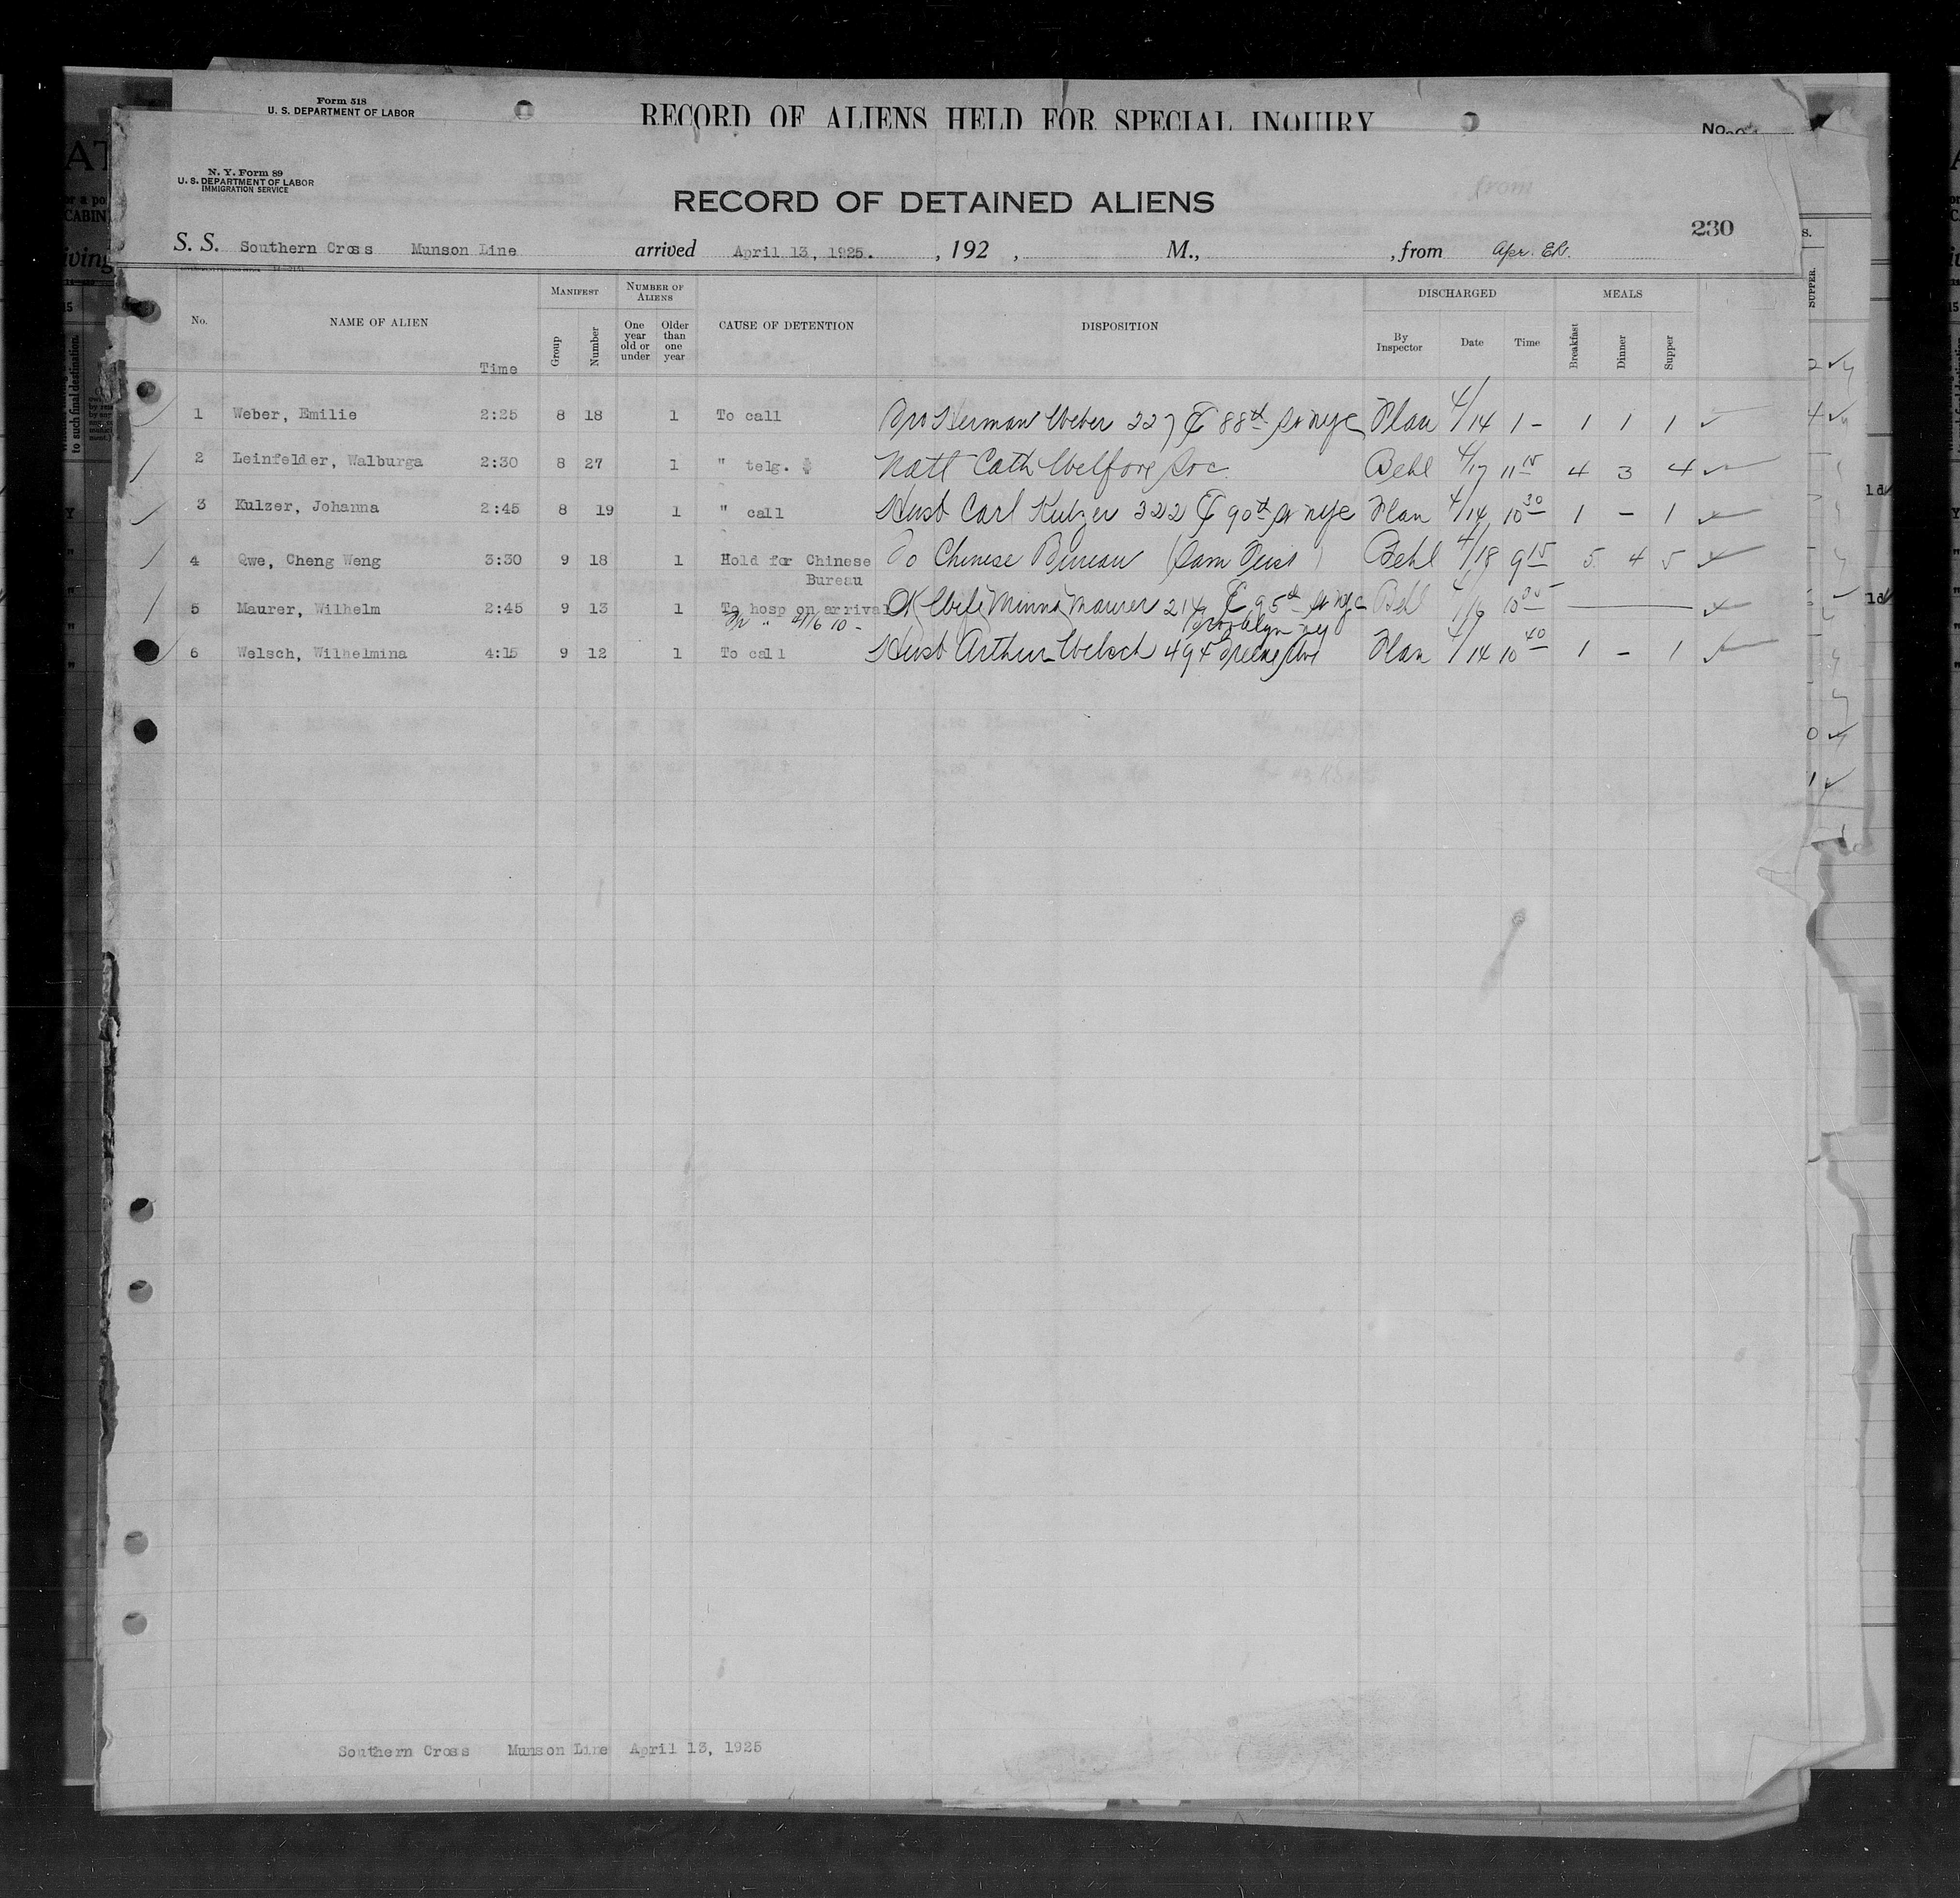 Form 518
U. S. DEPARTMENT OF LABOR
RECORD OF ALIENS HELD FOR SPECIAL INQUIRY
No.
N. Y. Form 89
U. S. DEPARTMENT OF LABOR
IMMIGRATION SERVICE
RECORD OF DETAINED ALIENS
from
230
S. S. Southern Cross Munson Line arrived April 13, 1925. , 192 , M., , from
No. NAME OF ALIEN Time MANIFEST Group Number NUMBER OF ALIENS One year old or under Older than one year CAUSE OF DETENTION DISPOSITION DISCHARGED By Inspector Date Time MEALS Breakfast Dinner Supper
1 Weber, Emilie 2:25 8 18 1 To call Bro Herman Weber 227 E 88th St nyc Plan 4/14 1 - 1 1 1 ✓
2 Leinfelder, Walburga 2:30 8 27 1 " telg. Natl Cath Welfare Soc Behl 4/17 11 15 4 3 4 ✓
3 Kulzer, Johanna 2:45 8 19 1 " call Husb Carl Kulzer 322 E 90th St nyc Plan 4/14 10 30 1 – 1 ✓
4 Qwe, Cheng Weng 3:30 9 18 1 Hold for Chinese Bureau To Chinese Bureau (Sam ) Behl 4/18 9 15 5 4 5 ✓
5 Maurer, Wilhelm 2:45 9 13 1 To hosp on arrival OK Wife Minna Maurer 214 E 95th St nyc Behl ✓
" 4/16 10 -
Brooklyn ny
6 Welsch, Wilhelmina 4:15 9 12 1 To call Husb Arthur Welsch 494 Greene Ave Plan 4/14 10 40 1 – 1 ✓
Southern Cross Munson Line April 13, 1925